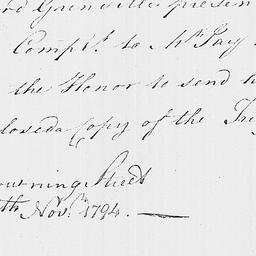 Grenville presen
Compts. to Mr. Jay
the Honor to send h
closed a Copy of the Tre
owning Street
th Novr. 1794.